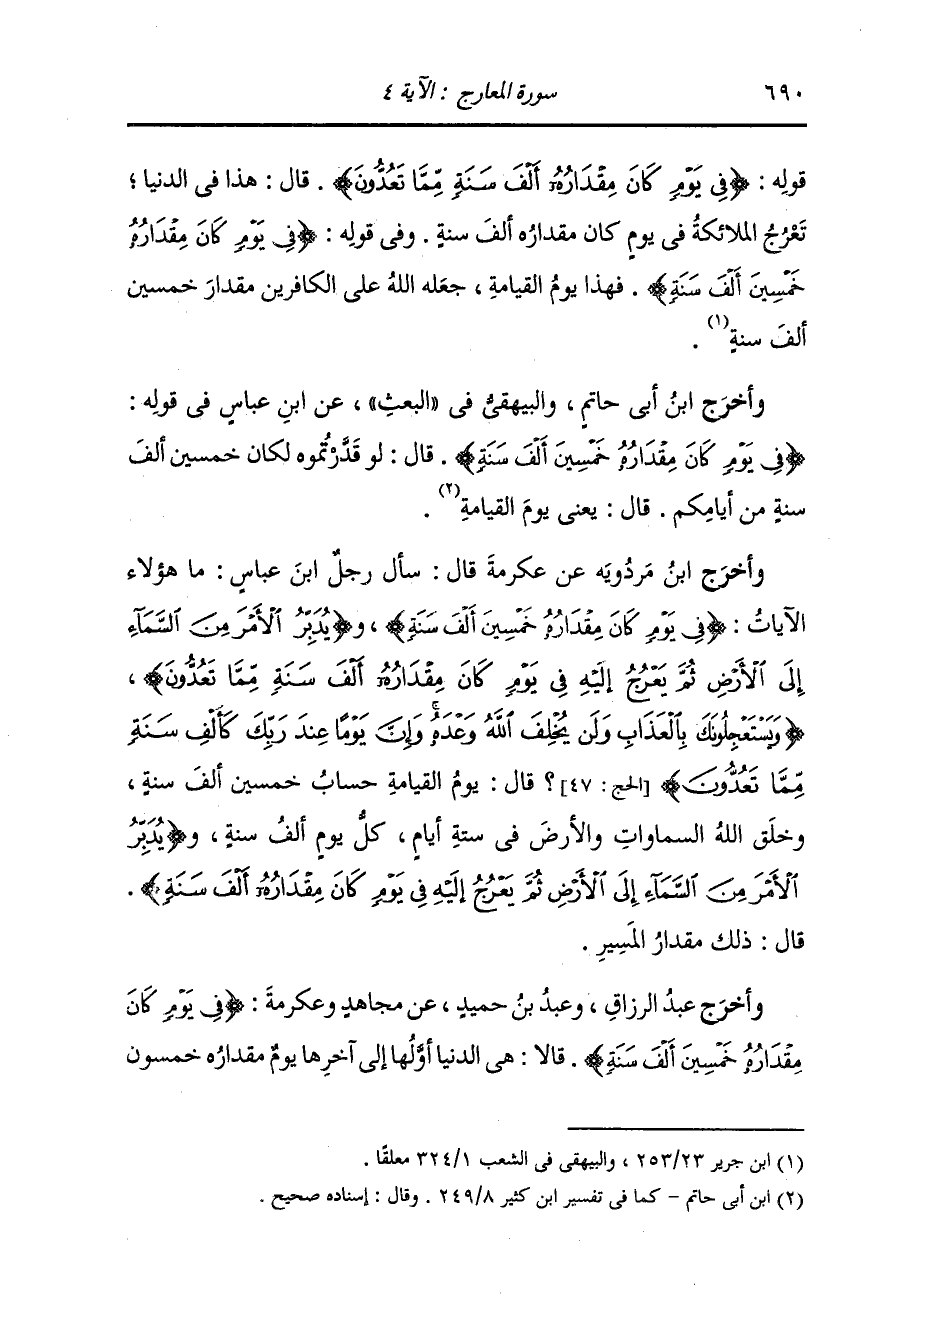 ٦٩٠ سورة المعارج : الآية ٤
قولِه : ﴿فِي يَوْمٍ كَانَ مِقْدَارُهُۥٓ أَلْفَ سَنَةٍ مِّمَّا تَعُدُّونَ﴾ . قال : هذا فى الدنيا ؛
تَعْرُجُ الملائكةُ فى يومٍ كان مقدارُه ألفَ سنةٍ . وفى قولِه : ﴿فِي يَوْمٍ كَانَ مِقْدَارُهُۥ
خَمْسِينَ أَلْفَ سَنَةٍ﴾ . فهذا يومُ القيامةِ ، جعَله اللهُ على الكافرين مقدارَ خمسين
ألفَ سنةٍ(١) .
وأخرَج ابنُ أبى حاتمٍ ، والبيهقىُّ فى «البعثِ» ، عن ابنِ عباسٍ فى قولِه :
﴿فِي يَوْمٍ كَانَ مِقْدَارُهُۥ خَمْسِينَ أَلْفَ سَنَةٍ﴾ . قال : لو قَدَّرْتُموه لكان خمسين ألفَ
سنةٍ من أيامِكم . قال : يعنى يومَ القيامةِ(٢) .
وأخرَج ابنُ مَردُويَه عن عكرمةَ قال : سأل رجلٌ ابنَ عباسٍ : ما هؤلاء
الآياتُ : ﴿فِي يَوْمٍ كَانَ مِقْدَارُهُۥ خَمْسِينَ أَلْفَ سَنَةٍ﴾ ، و﴿يُدَبِّرُ ٱلْأَمْرَ مِنَ ٱلسَّمَآءِ
إِلَى ٱلْأَرْضِ ثُمَّ يَعْرُجُ إِلَيْهِ فِي يَوْمٍ كَانَ مِقْدَارُهُۥٓ أَلْفَ سَنَةٍ مِّمَّا تَعُدُّونَ﴾ ،
﴿وَيَسْتَعْجِلُونَكَ بِٱلْعَذَابِ وَلَن يُخْلِفَ ٱللَّهُ وَعْدَهُۥۚ وَإِنَّ يَوْمًا عِندَ رَبِّكَ كَأَلْفِ سَنَةٍ
مِّمَّا تَعُدُّونَ﴾ [الحج : ٤٧] ؟ قال : يومُ القيامةِ حسابُ خمسين ألفَ سنةٍ ،
وخلَق اللهُ السماواتِ والأرضَ فى ستةِ أيامٍ ، كلُّ يومٍ ألفُ سنةٍ ، و﴿يُدَبِّرُ
ٱلْأَمْرَ مِنَ ٱلسَّمَآءِ إِلَى ٱلْأَرْضِ ثُمَّ يَعْرُجُ إِلَيْهِ فِي يَوْمٍ كَانَ مِقْدَارُهُۥٓ أَلْفَ سَنَةٍ﴾ .
قال : ذلك مقدارُ المَسِيرِ .
وأخرَج عبدُ الرزاقِ ، وعبدُ بنُ حميدٍ ، عن مجاهدٍ وعكرمةَ : ﴿فِي يَوْمٍ كَانَ
مِقْدَارُهُۥ خَمْسِينَ أَلْفَ سَنَةٍ﴾ . قالا : هى الدنيا أوَّلُها إلى آخرِها يومٌ مقدارُه خمسون
(١) ابن جرير ٢٥٣/٢٣ ، والبيهقى فى الشعب ٣٢٤/١ معلقًا .
(٢) ابن أبى حاتم - كما فى تفسير ابن كثير ٢٤٩/٨ . وقال : إسناده صحيح .